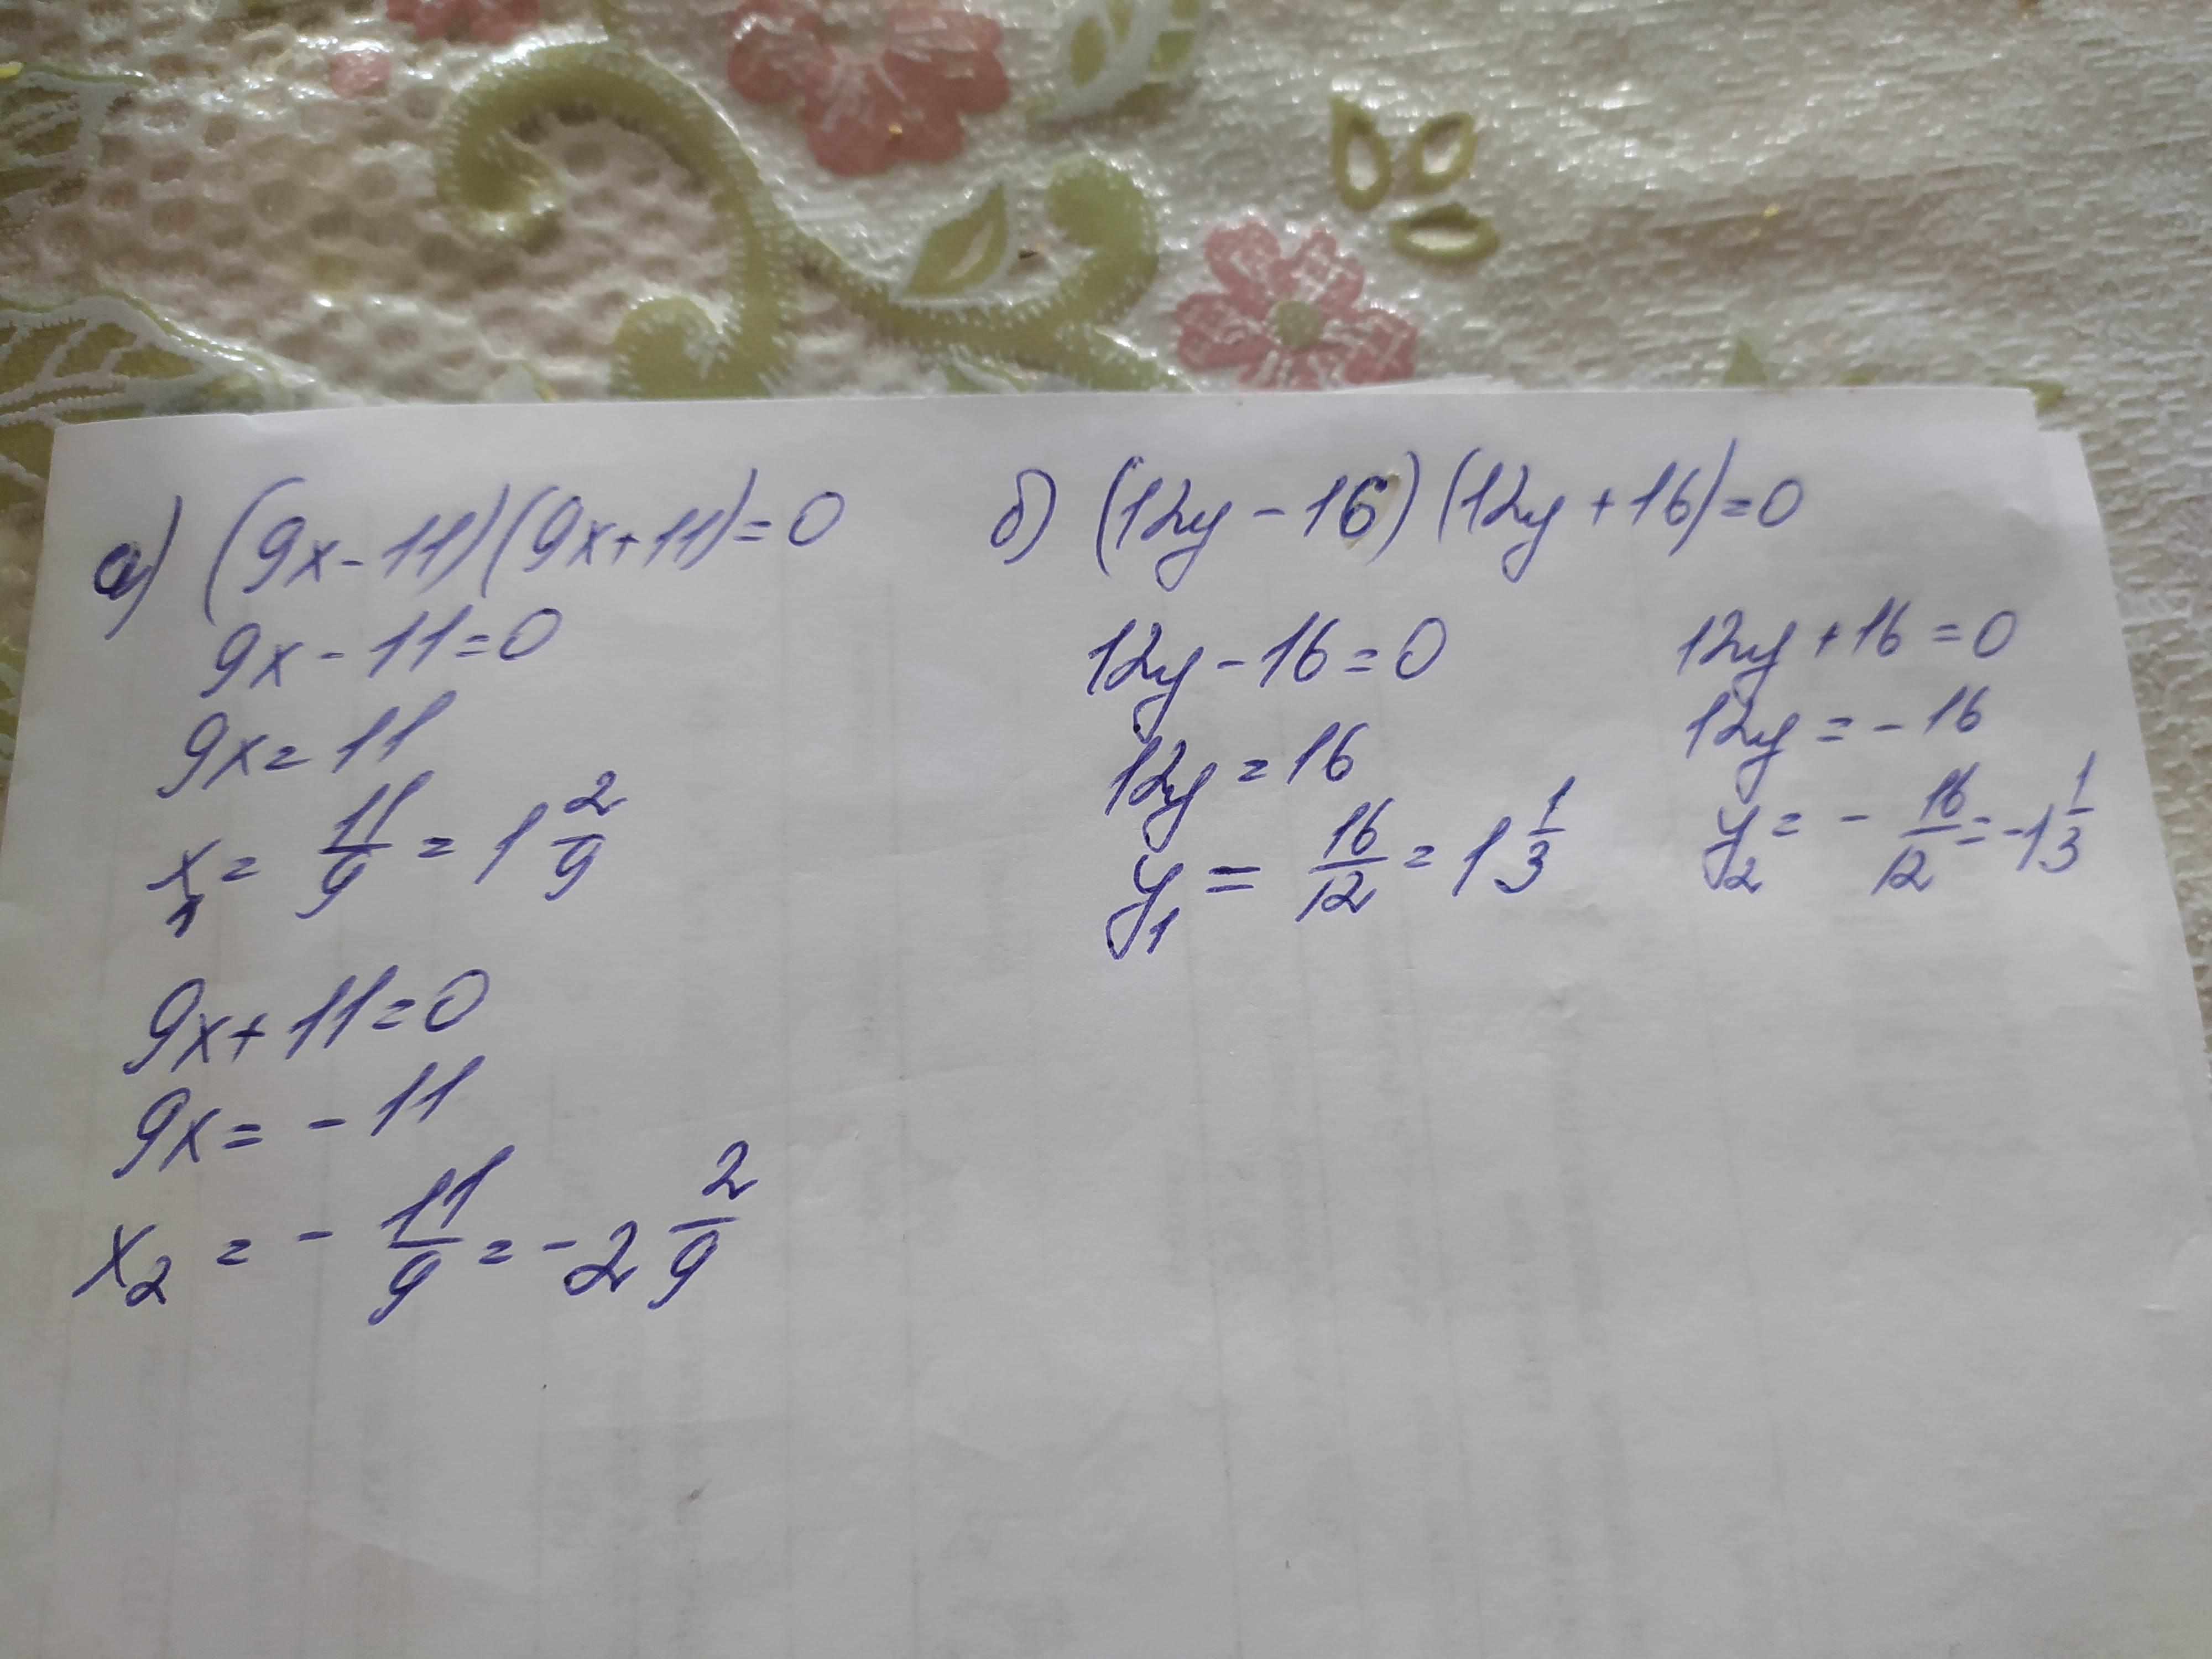 а) (9x-11)(9x+11)=0
9x-11=0
9x=11
x₁= 11/9 = 1 2/9
9x+11=0
9x=-11
x₂ = - 11/9 = -2 2/9
б) (12y-16)(12y+16)=0
12y-16=0
12y=16
y₁ = 16/12 = 1 1/3
12y+16=0
12y=-16
y₂ = - 16/12 = -1 1/3